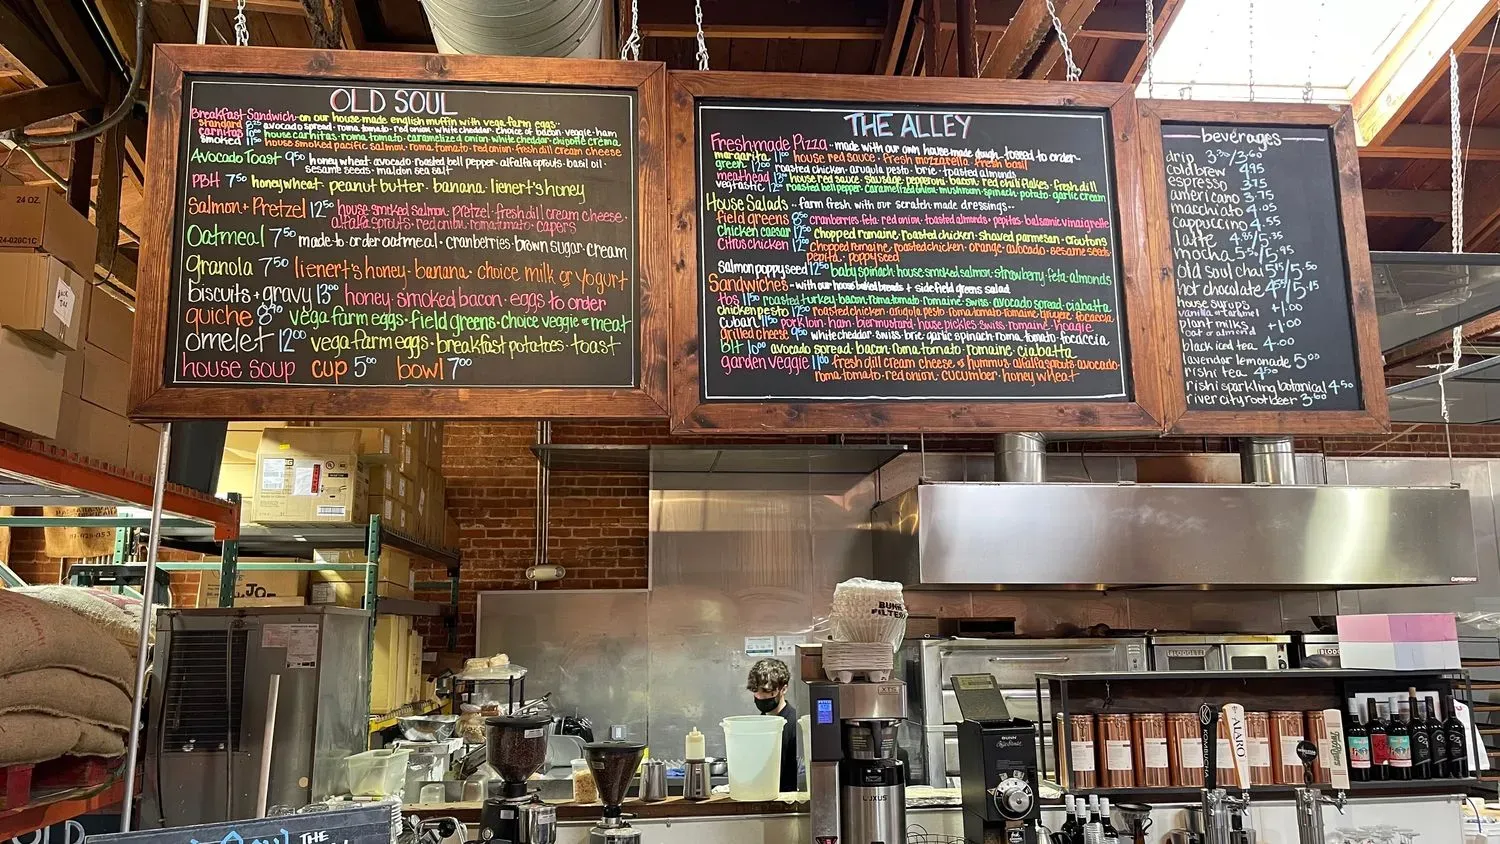 OLD SOUL
Breakfast Sandwich - on our house-made english muffin with vega farm eggs -
standard 8.25 avocado spread · roma tomato · red onion · white cheddar · choice of bacon · veggie · ham
carnitas 10.00 house carnitas · roma tomato · caramelized onion · white cheddar · chipotle crema
smoked 11.50 house smoked pacific salmon · roma tomato · red onion · fresh dill cream cheese
Avocado Toast 9.50 honey wheat · avocado · roasted bell pepper · alfalfa sprouts · basil oil ·
sesame seeds · maldon sea salt
PBH 7.50 honey wheat · peanut butter · banana · lienert's honey
Salmon + Pretzel 12.50 house smoked salmon · pretzel · fresh dill cream cheese ·
alfalfa sprouts · red onion · roma tomato · capers
Oatmeal 7.50 made to order oatmeal · cranberries · brown sugar · cream
Granola 7.50 lienert's honey · banana · choice milk or yogurt
biscuits + gravy 13.00 honey · smoked bacon · eggs to order
quiche vega farm eggs · field greens · choice veggie or meat
omelet 12.00 vega farm eggs · breakfast potatoes · toast
house soup cup 5.00 bowl 7.00
THE ALLEY
Fresh made Pizza - made with our own house-made dough - tossed to order -
margarita 11.00 house red sauce · fresh mozzarella · fresh basil
green 12.00 roasted chicken · arugula pesto · brie · toasted almonds
meathead 13.00 house red sauce · sausage · pepperoni · bacon · red chili flakes · fresh dill
vegtastic 12.00 roasted bell pepper · caramelized onion · mushroom · spinach · potato · garlic cream
House Salads - farm fresh with our scratch made dressings -
field greens 8.50 cranberries · feta · red onion · toasted almonds · pepitas · balsamic vinaigrette
chicken caesar 12.50 chopped romaine · roasted chicken · shaved parmesan · croutons
citrus chicken 12.00 chopped romaine · roasted chicken · orange · avocado · sesame seeds ·
pepita · poppyseed
salmon poppyseed 12.50 baby spinach · house smoked salmon · strawberry · feta · almonds
Sandwiches - with our house baked breads + side field greens salad
tbs 11.50 roasted turkey · bacon · roma tomato · romaine · swiss · avocado spread · ciabatta
chicken pesto 12.50 roasted chicken · arugula pesto · roma tomato · romaine · gruyere · focaccia
cuban 11.50 pork loin · ham · bier mustard · house pickles · swiss · romaine · hoagie
grilled cheese 9.50 white cheddar · swiss · brie · garlic spinach · roma tomato · focaccia
blt 10.00 avocado spread · bacon · roma tomato · romaine · ciabatta
garden veggie 11.00 fresh dill cream cheese or hummus · alfalfa sprouts · avocado ·
roma tomato · red onion · cucumber · honey wheat
beverages
drip 3.30/3.60
cold brew 4.95
espresso 3.75
americano 3.75
macchiato 4.25
cappuccino 4.55
latte 4.85/5.35
mocha 5.50/5.95
old soul chai 5.15/5.50
hot chocolate 4.65/5.15
house syrups
vanilla or caramel +1.00
plant milks
oat or almond +1.00
black iced tea 4.00
lavendar lemonade 5.00
rishi tea 4.50
rishi sparkling botanical 4.50
river city rootbeer 3.60
24 OZ.
24-020C1C
JOE
BUNN
FILTERS
BLODGETT
BUNN
LUXUS
KOMBUCHA
ALVARO
THE